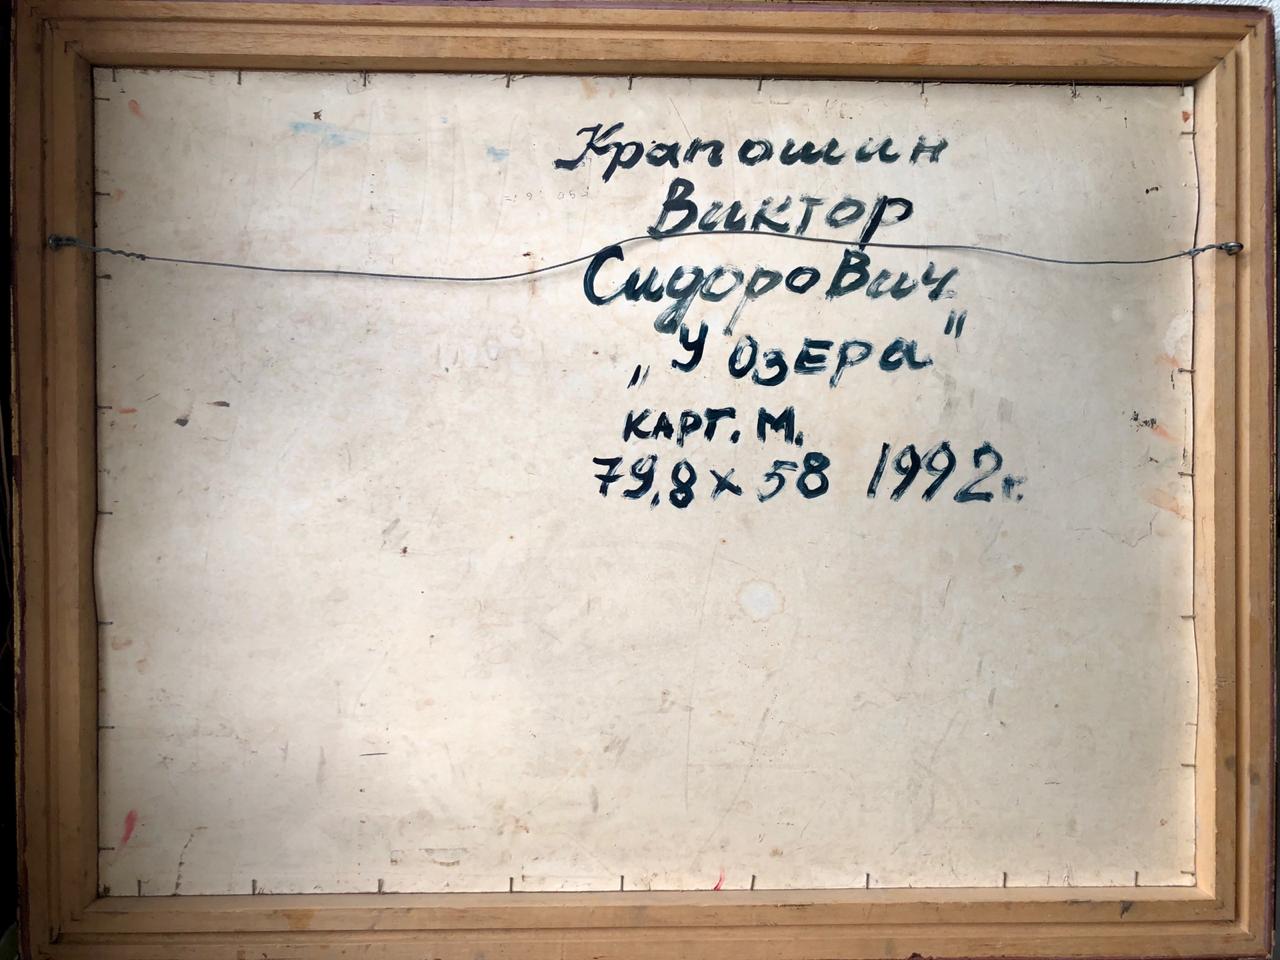 Крапошин
Виктор
Сидорович
„У озЕра"
КАРТ. М.
79,8 х 58 1992г.